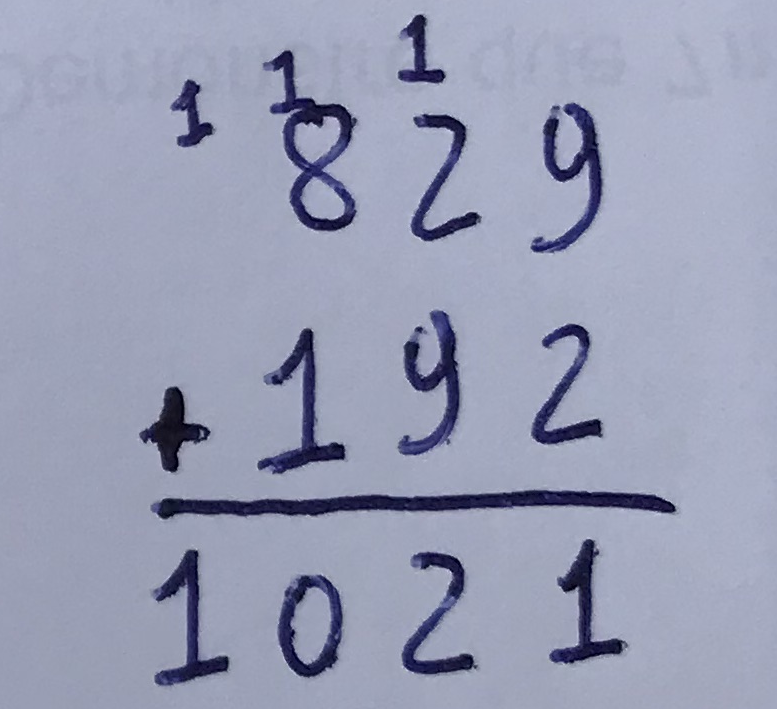 1 1 1
829
+ 192
1021